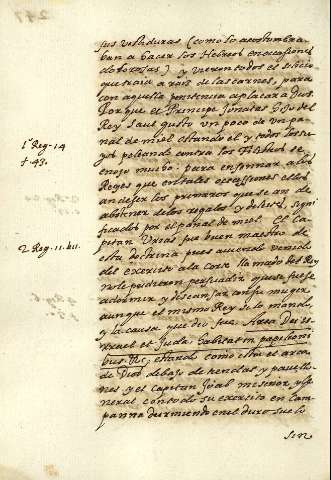 sus vestiduras (como lo acostumbra
ban a hacer los Hebreos en ocasiones
de forosas) y vieron todos el silicio
que traia a raiz de las carnes, para
con aquella penitencia aplacar a Dios.
Porque el Principe Jonatas hijo del
Rey Saul gusto un poco de un pa-
nal de miel estando el y todos los su-
yos peleando contra los Filisteos se
enojo mucho: para enseñar a los
Reyes que en tales ocassiones ellos
an de ser los primeros que se an de
abstener de los regalos y deleites signi-
ficados por el panal de miel. El Ca-
pitan Vrias fue buen maestro de
esta doctrina pues auiendo venido
del exercito a la corte llamado del Rey
no le pudieron persuadir a que se fuese
a dormir y descansar con su muger
aunque el mismo Rey se lo mando,
y la causa que dio fue. Arca Dei et
Israel et Juda habitant in papilioni
bus &c, estando como esta el arca
de Dios debajo de tiendas y pauello-
nes y el capitan Joab mi señor, y Ge-
neral con todo su exercito en Cam-
panna durmiendo en el duro suelo
sin
1º Reg. 14
℣. 43.
2 Reg. 11. bu.
247